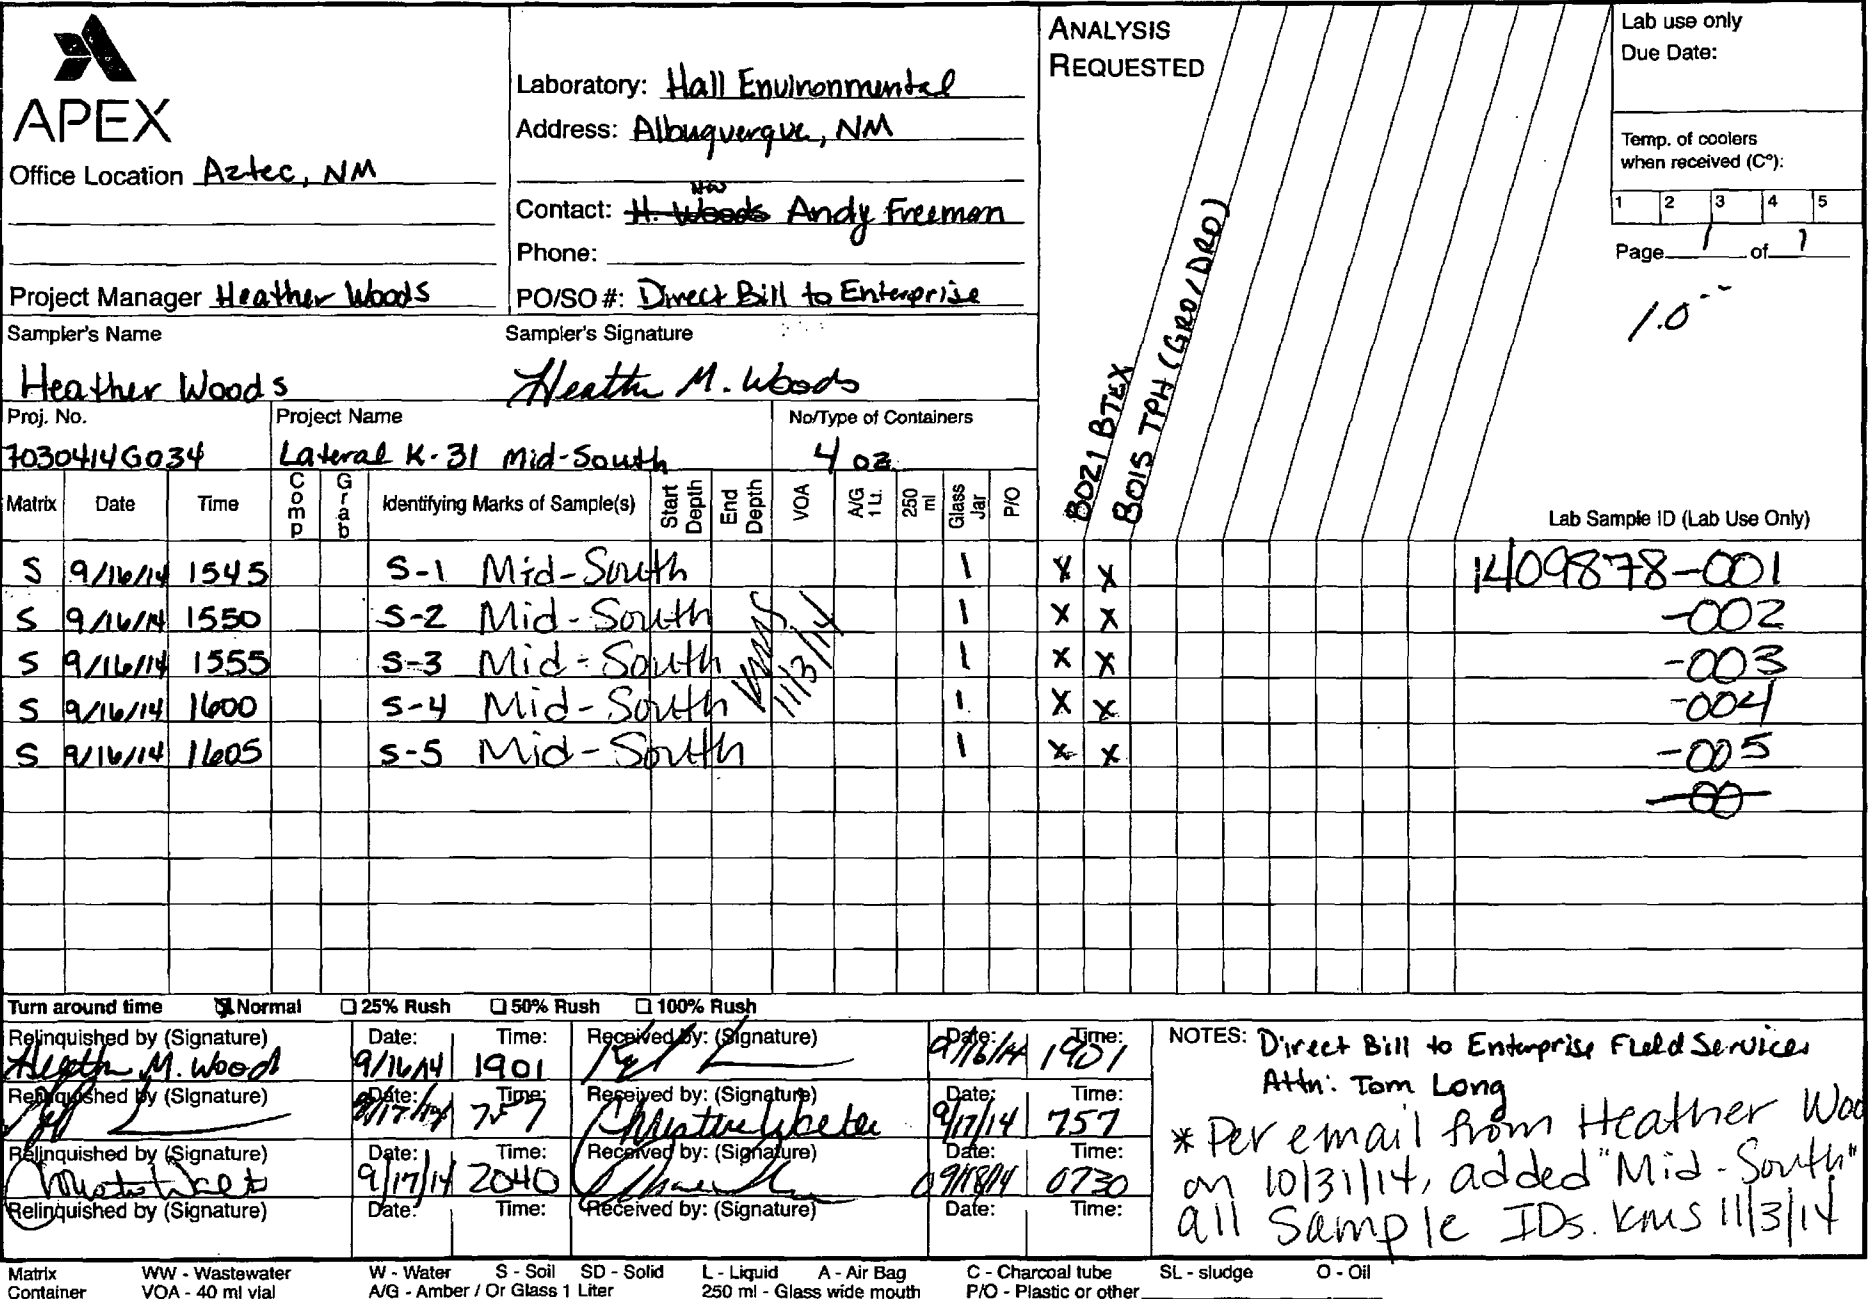 APEX
Office Location Aztec, NM
Project Manager Heather Woods
Laboratory: Hall Environmental
Address: Albuquerque, NM
HW
Contact: H. Woods Andy Freeman
Phone:
PO/SO #: Direct Bill to Enterprise
ANALYSIS
REQUESTED
8021 BTEX
8015 TPH (GRO/DRO)
Lab use only
Due Date:
Temp. of coolers
when received (C°):
1 2 3 4 5
Page 1 of 1
1.0
Sampler's Name Sampler's Signature
Heather Woods Heather M. Woods
Proj. No. Project Name No/Type of Containers
7030414G034 Lateral K-31 Mid-South 4 oz
Matrix Date Time Comp Grab Identifying Marks of Sample(s) Start Depth End Depth VOA A/G 1 Lt. 250 ml Glass Jar P/O Lab Sample ID (Lab Use Only)
S 9/16/14 1545 S-1 Mid-South 1 X X 1409878-001
S 9/16/14 1550 S-2 Mid-South 1 X X -002
S 9/16/14 1555 S-3 Mid-South 1 X X -003
S 9/16/14 1600 S-4 Mid-South 1 X X -004
S 9/16/14 1605 S-5 Mid-South 1 X X -005
-00
KMS
11/3/14
Turn around time Normal 25% Rush 50% Rush 100% Rush
Relinquished by (Signature) Date: Time: Received by: (Signature) Date: Time:
Heather M. Wood 9/16/14 1901 9/16/14 1901
Relinquished by (Signature) Date: Time: Received by: (Signature) Date: Time:
9/17/14 757 9/17/14 757
Relinquished by (Signature) Date: Time: Received by: (Signature) Date: Time:
9/17/14 2040 09/18/14 0730
Relinquished by (Signature) Date: Time: Received by: (Signature) Date: Time:
NOTES: Direct Bill to Enterprise Field Services
Attn: Tom Long
* Per email from Heather Woo
on 10/31/14, added "Mid-South"
all Sample IDs. KMS 11/3/14
Matrix WW - Wastewater W - Water S - Soil SD - Solid L - Liquid A - Air Bag C - Charcoal tube SL - sludge O - Oil
Container VOA - 40 ml vial A/G - Amber / Or Glass 1 Liter 250 ml - Glass wide mouth P/O - Plastic or other